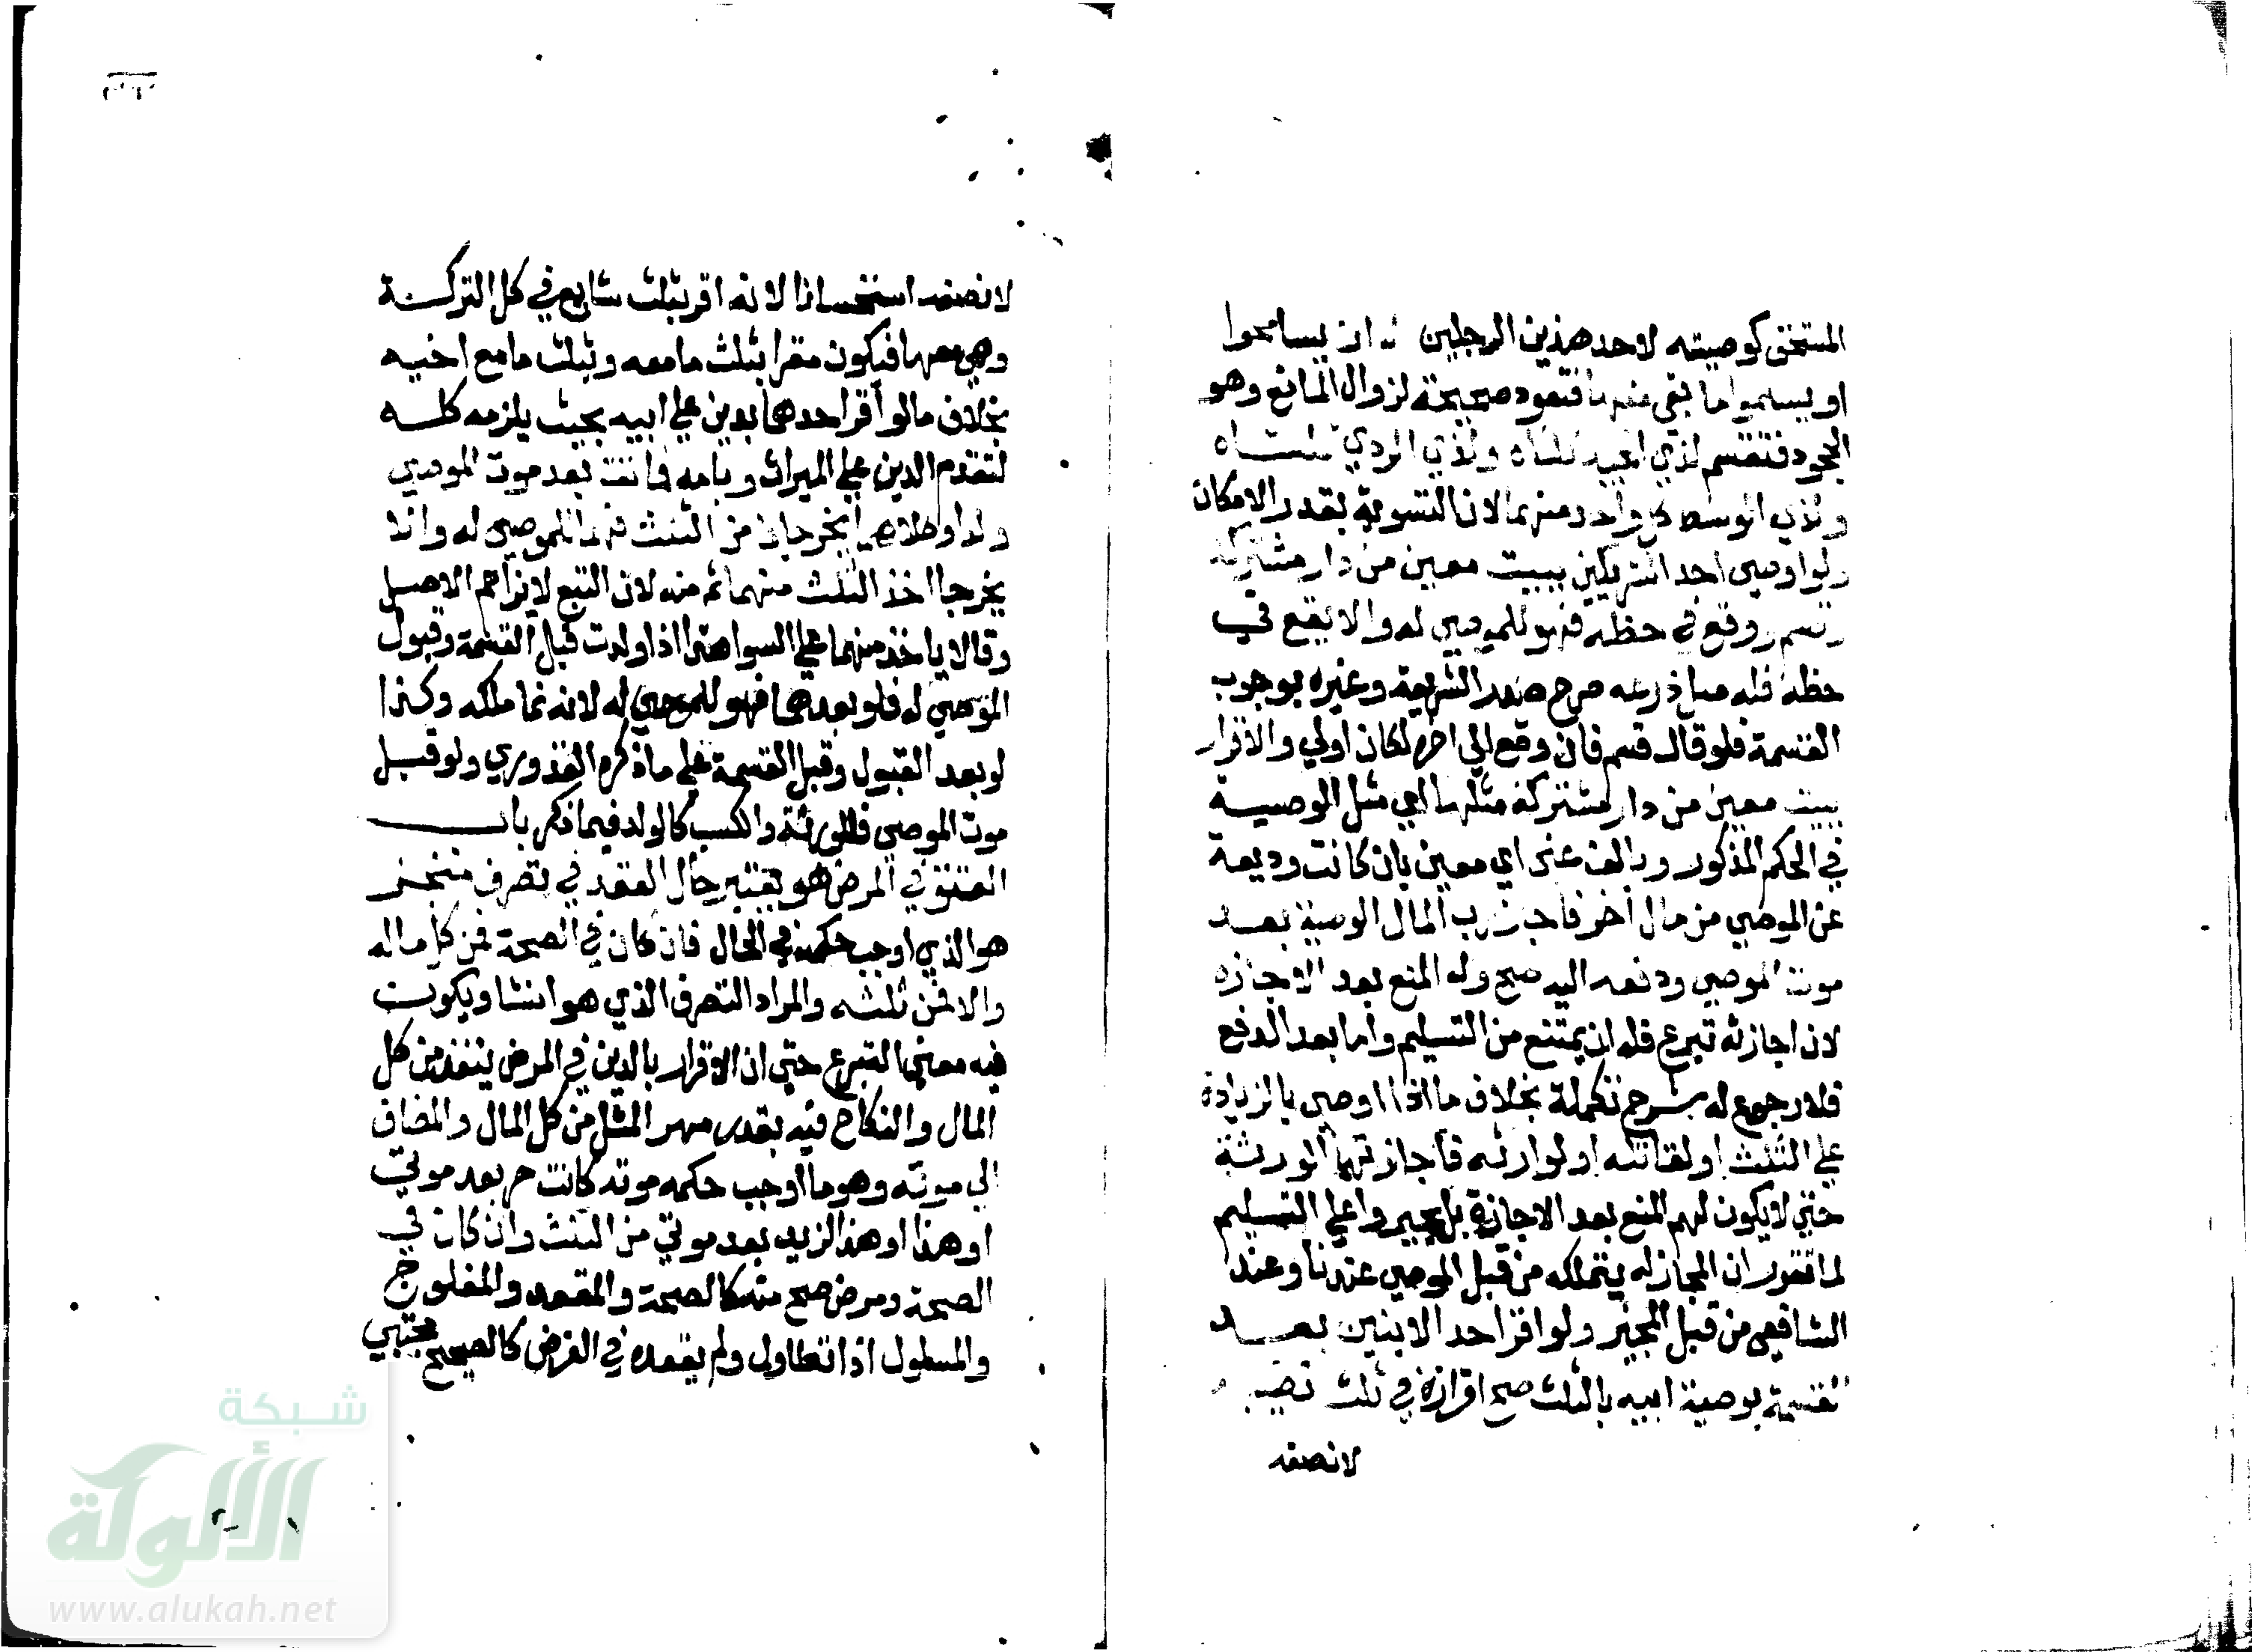 المستحق كوصيته لاحد هذين الرجلين الا ان يسامحوا
او يسلموا ما بقي منهما فتعود صحيحة لزوال المانع وهو
الجحود فتقسم لذي الجيد ثلثاه ولذي الردي ثلثاه
ولذي الوسط كل واحد منهما لان التسوية بقدر الامكان
ولو اوصى احد الشريكين ببيت معين من دار مشتركة
وقسم ووقع في حظه فهو للموصي له والا يقع في
حظه فله مثل ذرعه صرح صدر الشريعة وغيره بوجوب
القسمة فلو قال قسم فان وقع الي اخره لكان اولي والاقرار
ببيت معين من دار مشتركة مثلها اي مثل الوصية
في الحكم المذكور وبالف عين اي معين بان كانت وديعة
عن الموصي من مال اخر فاجاز رب المال الوصية بعد
موت الموصي ودفعه اليه صح وله المنع بعد الاجازه
لان اجازته تبرع فله ان يمتنع من التسليم واما بعد الدفع
فلا رجوع له شرح تكملة بخلاف ما اذا اوصي بالزيادة
علي الثلث او لقاتله او لوارثه فاجازتها الورثة
حتي لا يكون لهم المنع بعد الاجازة بل يجبروا علي التسليم
لما تقرر ان المجاز له يتملكه من قبل الموصي عندنا وعند
الشافعي من قبل المجيز ولو اقر احد الابنين بعد
القسمة بوصية ابيه بالثلث صح اقراره في ثلث نصيبه
لا نصفه
لا نصفه استحسانا لانه اقر بثلث شايع في كل التركة
وهي معهما فيكون مقرا بثلث ما معه وبثلث ما مع اخيه
بخلاف ما لو اقر احدهما بدين علي ابيه بحيث يلزمه كله
لتقدم الدين علي الميراث وبامه فاتت بعد موت الموصي
ولدا وكلاهما يخرجان من الثلث فهما للموصي له والا
يخرجا اخذ الثلث منها ثم منه لان التبع لا يزاحم الاصل
وقالا ياخذ منهما علي السوا هذا اذا ولدت قبل القسمة وقبول
الموصي له فلو بعدهما فهو للموصي له لانه نما ملكه وكذا
لو بعد القبول وقبل القسمة علي ما ذكره القدوري ولو قبل
موت الموصي فللورثة والكسب كالولد فيما ذكر باب
العتق في المرض هو يعتبر حال العقد في تصرف منجز
هو الذي اوجب حكمه في الحال فان كان في الصحة فمن كل ماله
والا فمن ثلثه والمراد التصرف الذي هو انشا ويكون
فيه معني التبرع حتي ان الاقرار بالدين في المرض ينفذ من كل
المال والنكاح فيه بقدر مهر المثل من كل المال والمضاف
الي موته وهو ما اوجب حكمه موته كانت حر بعد موتي
او هذا او هذا لزيد بعد موتي من الثلث وان كان في
الصحة ومرض صح منه كالصحة والمقعد والمفلوج
والمسلول اذا تطاول ولم يقعده في الفرض كالصحيح مجتبي
شبكة
الألوكة
www.alukah.net